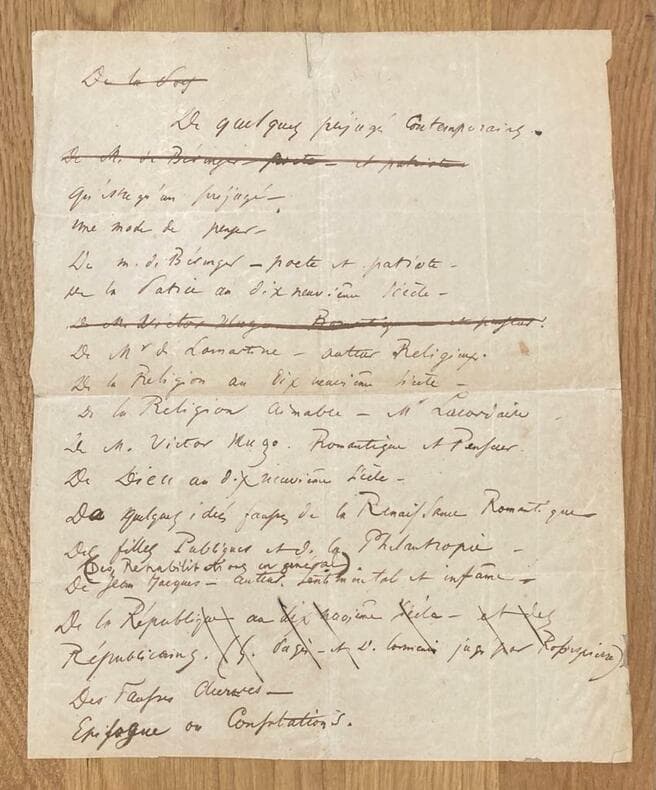 De la Poés
De quelques préjugés contemporains.
De M. de Béranger – poete – et patriote
Qu'est-ce qu'un préjugé –
une mode de penser –
De M. de Béranger – poete et patriote –
De la Patrie au dix neuvième siècle –
De M. Victor Hugo Romantique et penseur.
De Mr de Lamartine – auteur Religieux.
De la Religion au dix neuvième siècle –
De la Religion aimable – Mr Lacordaire
De M. Victor Hugo. Romantique et Penseur.
De Dieu au dix neuvième siècle –
De quelques idées fausses de la Renaissance Romantique –
Des filles Publiques et de la Philantropie –
(Des Réhabilitations en général)
De Jean Jacques – auteur sentimental et infâme –
De la République au dix neuvième siècle – et des
Républicains. (G. Pagès – et jugés par Robespierre).
Des Fausses Aurores –
Epilogue ou Consolations.